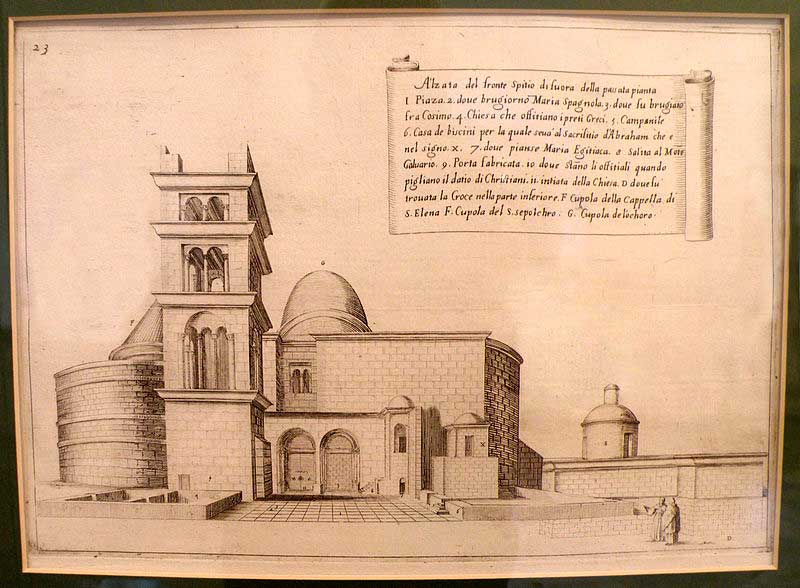 23
Alzata del fronte Spitio di fuora della passata pianta
1 Piaza. 2. doue brugiorno Maria Spagnola. 3. doue fu brugiato
fra Cosimo. 4. Chiesa che offitiano i preti Greci. 5. Campanile
6. Casa de biscini per la quale seua al Sacrifitio d'Abraham che e
nel signo. x. 7. doue pianse Maria Egitiaca. 8 Salita al Mote
Caluario. 9. Porta fabricata. 10 doue stano li offitiali quando
pigliano il datio di Christiani. 11. intrata della Chiesa. D doue fu
trouata la Croce nella parte inferiore. F Cupola della Cappella di
S. Elena F. Cupola del S. sepolchro. G. Cupola de lo choro.
G
F
X
D